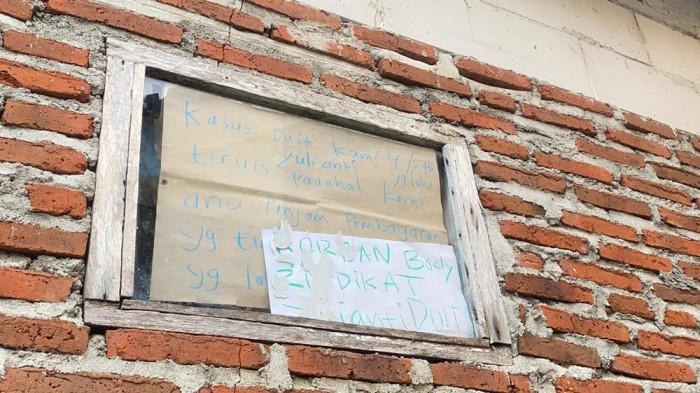 Kasus Duit Kami 14/5th
teriris Yulianti yg lalu
Padahal Kami
anu Pinjam Pembayaran
yg
yg
KORBAN Body
DIKAT
iantiDUIT